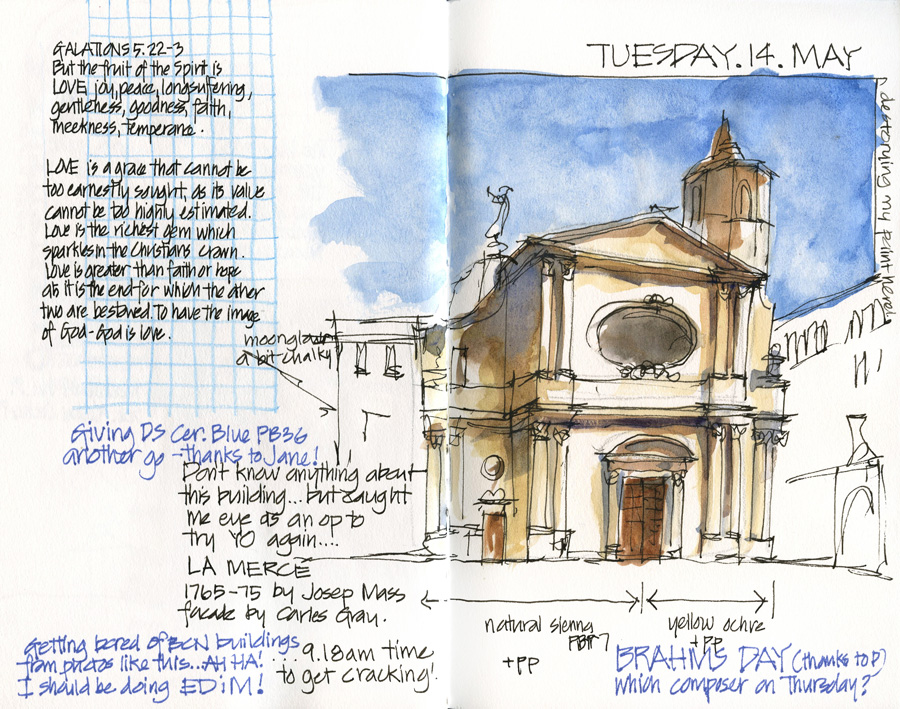 GALATIONS 5.22-3
But the fruit of the Spirit is
LOVE, joy, peace, longsuffering,
gentleness, goodness, faith,
meekness, temperance.
LOVE is a grace that cannot be
too earnestly sought, as its value
cannot be too highly estimated.
Love is the richest gem which
sparkles in the Christians crown.
Love is greater than faith or hope
as it is the end for which the other
two are bestowed. To have the image
of God - God is love.
moonglow
a bit chalky
Giving DS Cer. Blue PB36
another go - thanks to Jane!
Don't know anything about
this building... but caught
me eye as an op to
try YO again....
LA MERCE
1765-75 by Josep Mass
facade by Carles Grau.
Getting bored of BCN buildings
from photos like this... AH HA!
I should be doing EDiM!
...9.18am time
to get cracking!
TUESDAY.14.MAY
destorying my paint here!
natural sienna
PBr7
+PP
yellow ochre
+PP
BRAHMS DAY (thanks to P)
which composer on Thursday?